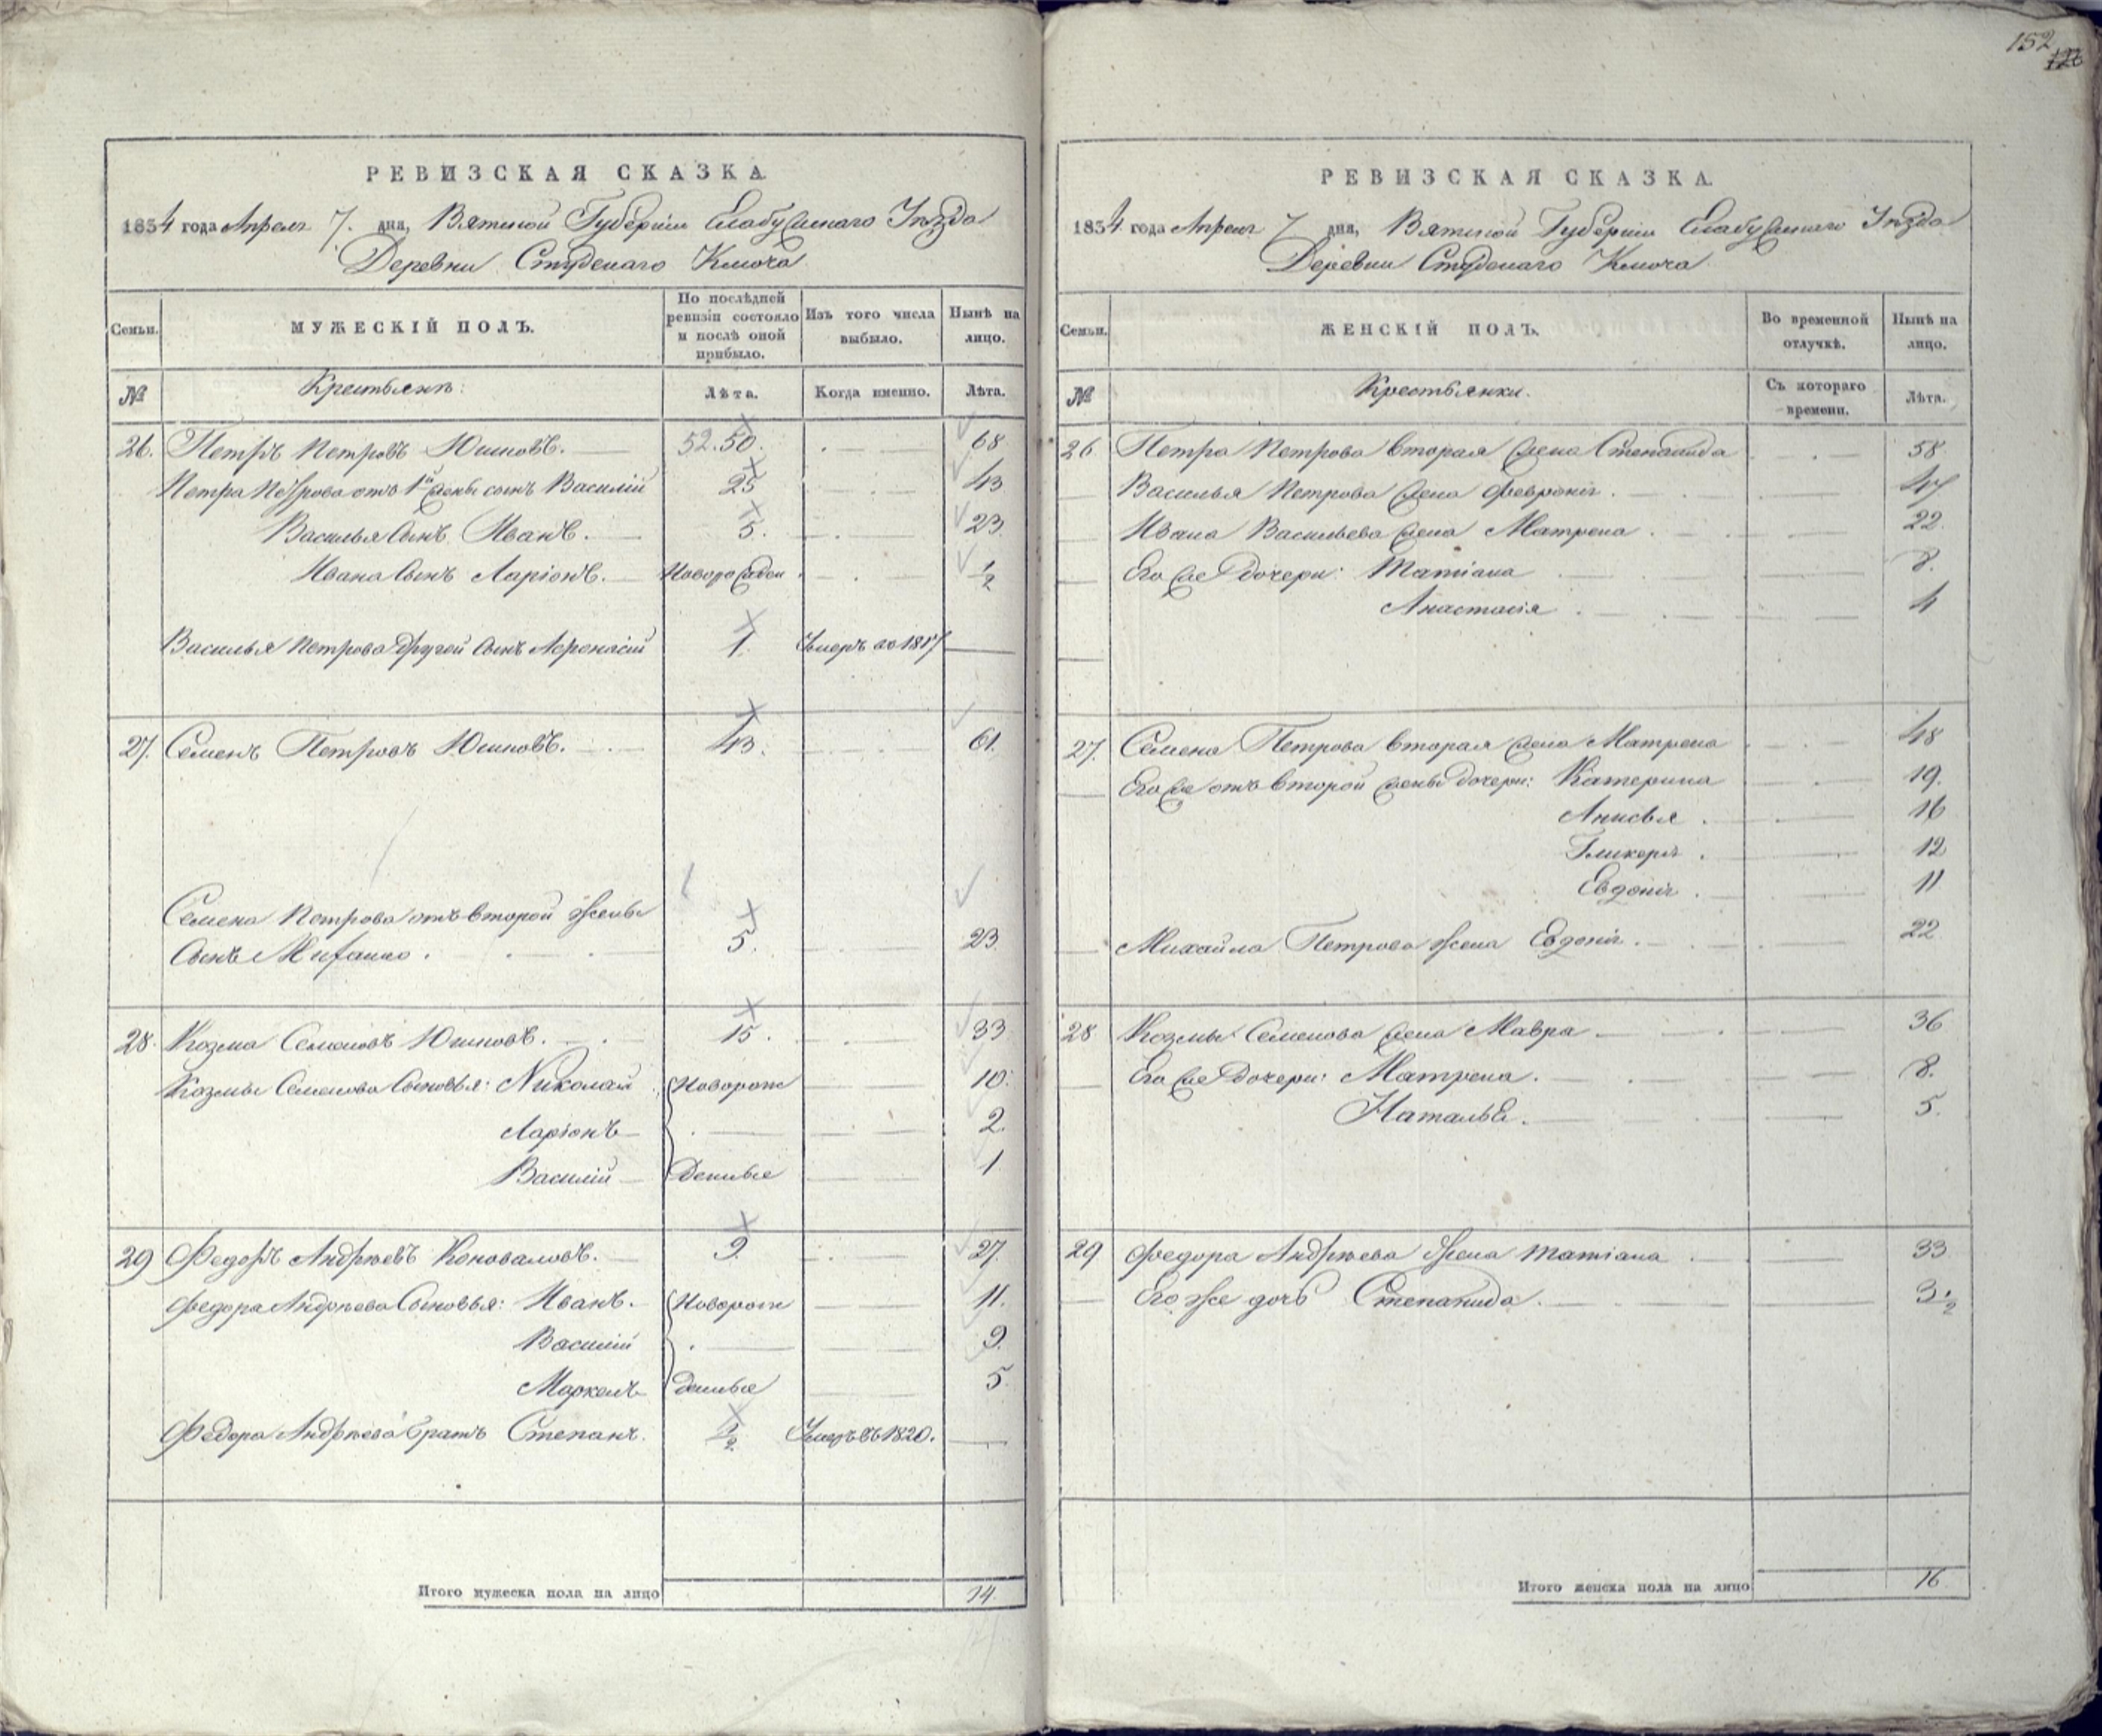 152
РЕВИЗСКАЯ СКАЗКА.
1834 года Апреля 7. дня, Вятской Губернiи Елабужскаго Уѣзда
Деревни Студенаго Ключа
Семьи.
МУЖЕСКIЙ ПОЛЪ.
По послѣдней ревизiи состояло и послѣ оной прибыло.
Изъ того числа выбыло.
Нынѣ на лицо.
№
Крестьянъ:
Лѣта.
Когда именно.
Лѣта.
26. Петръ Петровъ Юшковъ. 52. 50. 68
Петра Петрова отъ 1й жены сынъ Василiй 25 43
Василья сынъ Иванъ. 5. 23
Ивана сынъ Ларiонъ. Новорожден 1/2
Василья Петрова другой сынъ Афонасiй 1. Умеръ во 1817
27. Семенъ Петровъ Юшковъ. 43. 61.
Семена Петрова отъ второй жены
сынъ 5. 23
28. Козма Семеновъ Юшковъ. 15. 33
Козмы Семенова сыновья: Николай Новорож 10.
Ларiонъ 2.
Василiй денные 1
29 Федоръ Андрѣевъ Коноваловъ. 9. 27.
Федора Андрѣева сыновья: Иванъ. Новорож 11.
Василiй 9.
Маркелъ денные 5.
Федора Андрѣева братъ Степанъ. 1/2 Умеръ въ 1820.
Итого мужеска пола на лицо 14.
РЕВИЗСКАЯ СКАЗКА.
1834 года Апреля 7 дня, Вятской Губернiи Елабужскаго Уѣзда
Деревни Студенаго Ключа
Семьи.
ЖЕНСКIЙ ПОЛЪ.
Во временной отлучкѣ.
Нынѣ на лицо.
№
Крестьянки.
Съ котораго времени.
Лѣта.
26 Петра Петрова вторая жена Степанида 58
Василья Петрова жена Февронiя. 47
Ивана Васильева жена Матрена. 22
Его же дочери: Татiана 8.
Анастасiя 4
27. Семена Петрова вторая жена Матрена 48
Его же отъ второй жены дочери: Катерина 19.
Анисья. 16
Гликерiя. 12
Евдокiя. 11
Михайла Петрова жена Евдокiя. 22
28 Козмы Семенова жена Мавра 36
Его же дочери: Матрена. 8.
Наталья. 5.
29 Федора Андрѣева жена Татiана 33
Его же дочь Степанида. 3 1/2
Итого женска пола на лицо 16